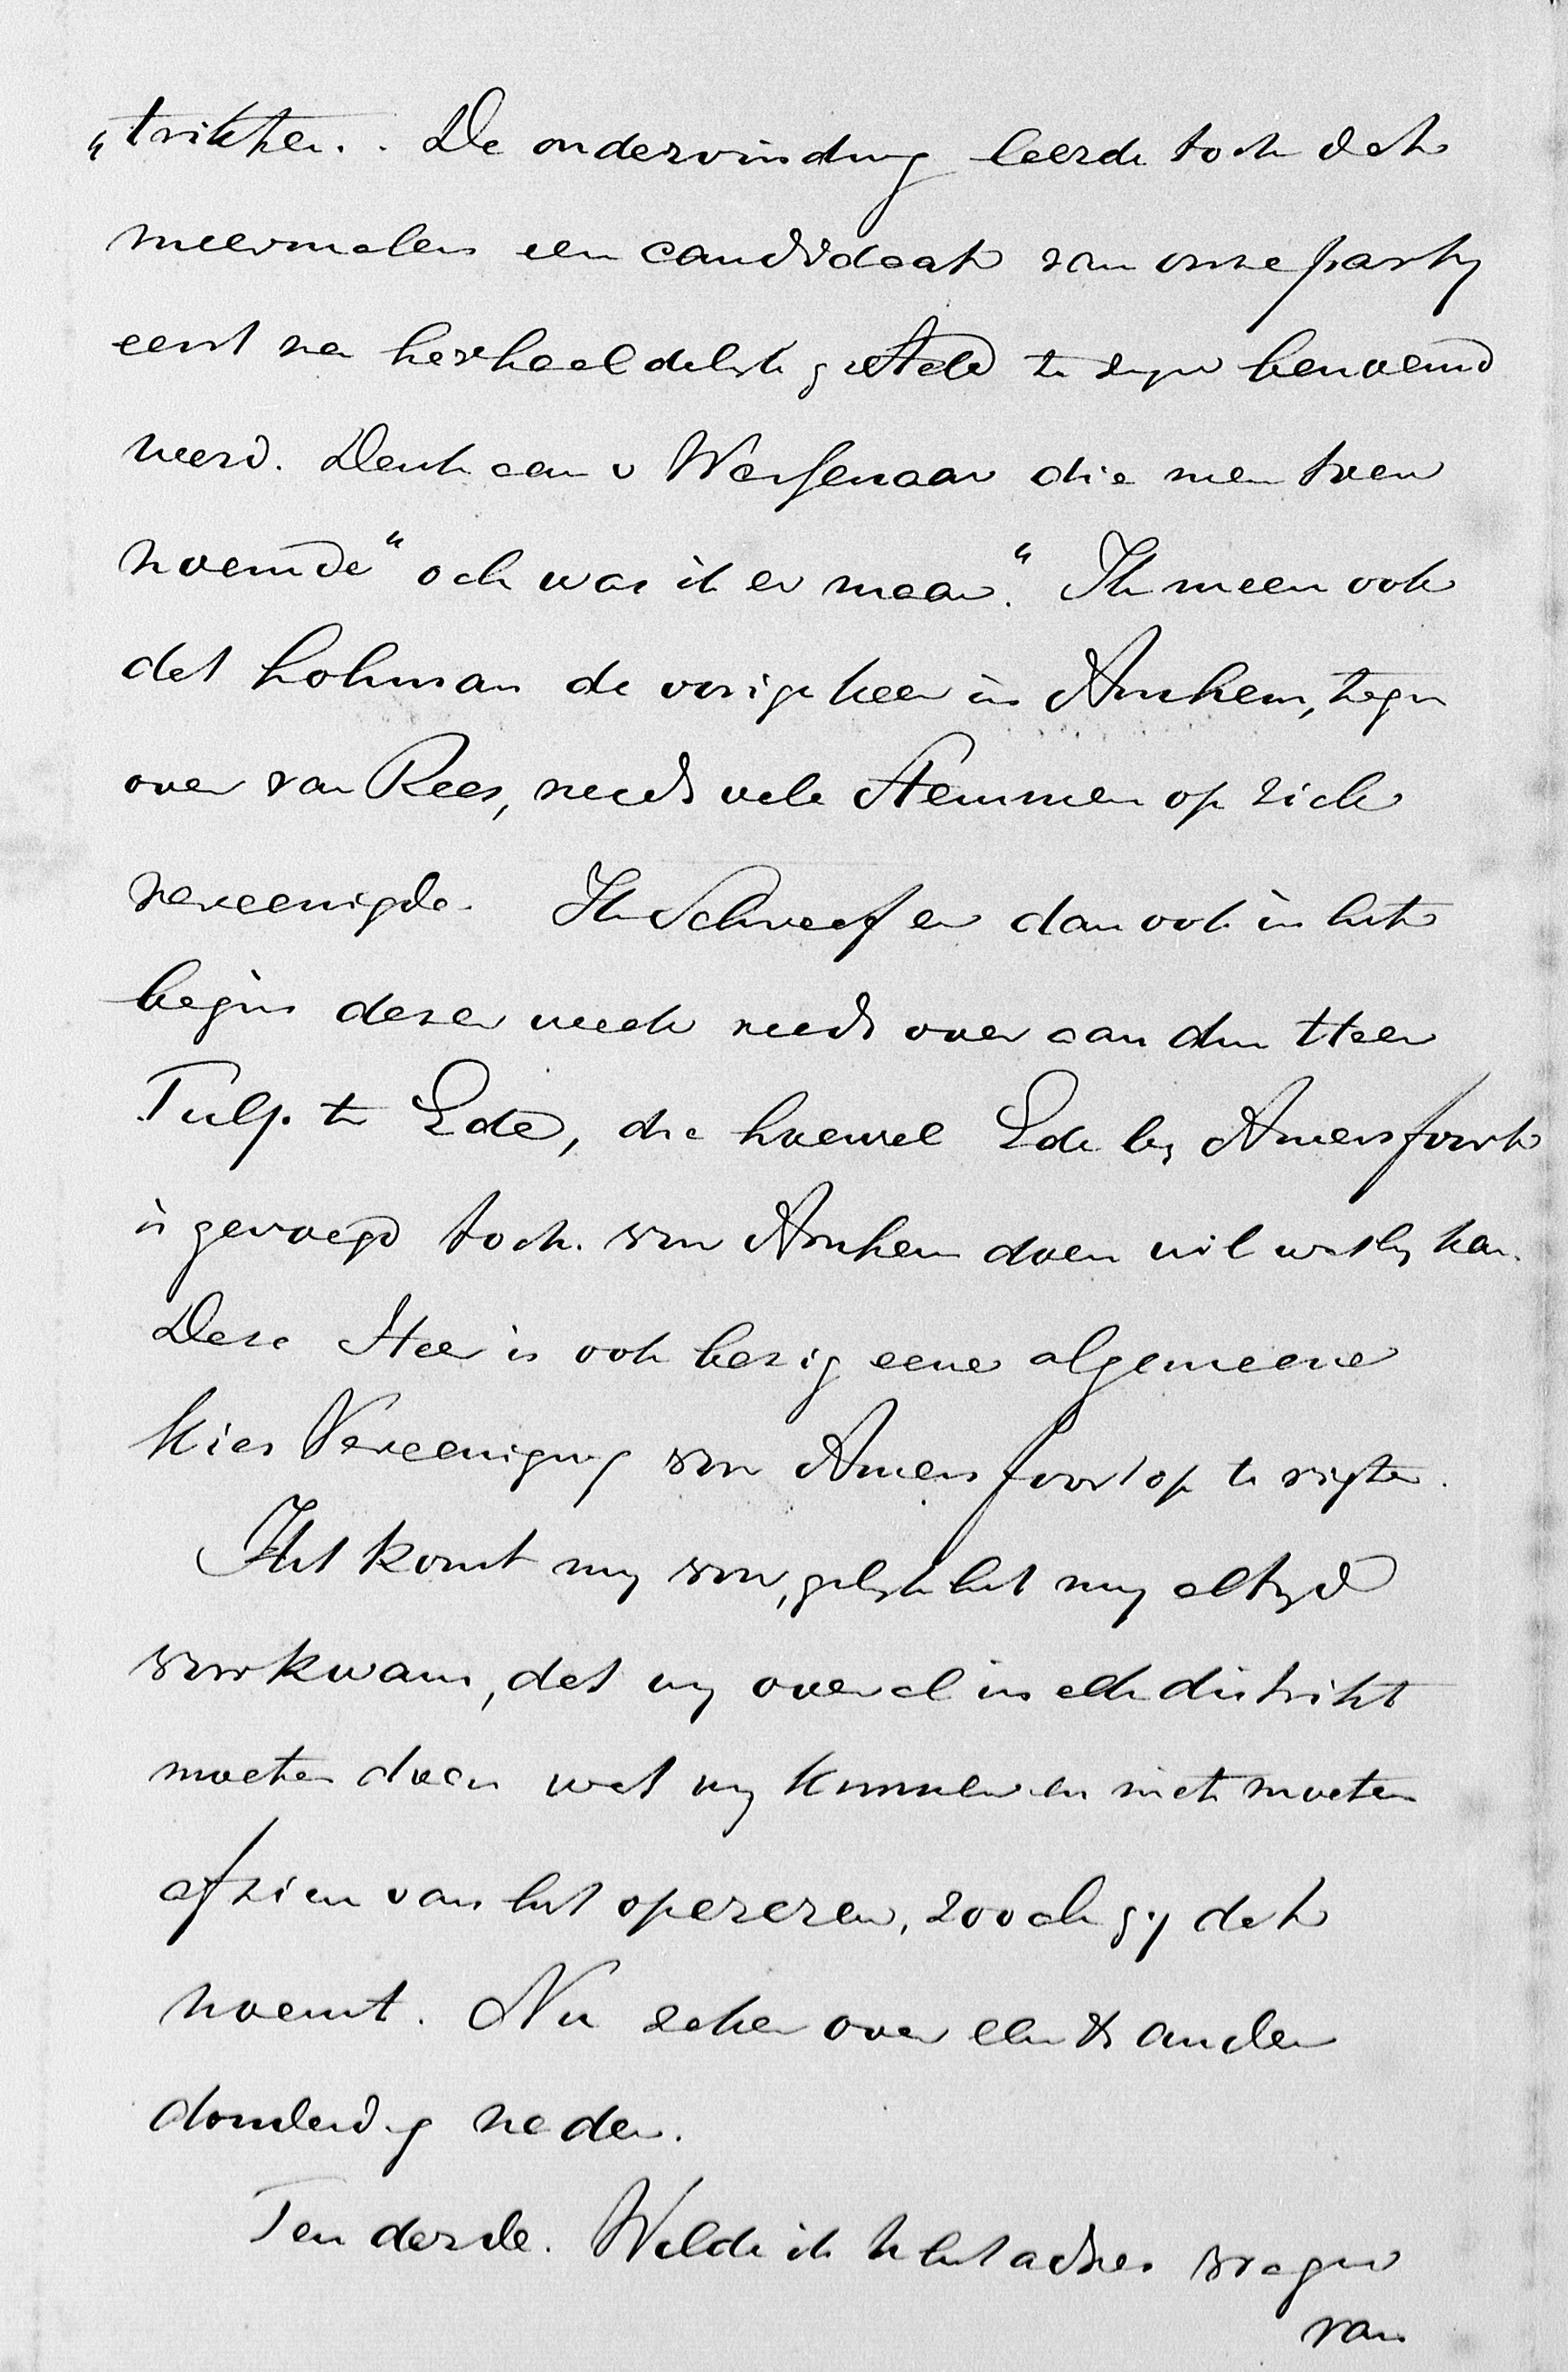 „trikten. De ondervinding leerde toch dat
meermalen een candidaat van onze party
eerst na herhaaldelyk gesteld te zyn benoemd
werd. Denk aan v Wassenaar die men toen
noemde "och was ik er maar". Ik meen ook
dat Lohman de vorige keer in Arnhem, tegen
over van Rees, reeds vele stemmen op zich
vereenigde. Ik schreef er dan ook in het
begin dezer week reeds over aan den Heer
Tulp te Ede, die hoewel Ede by Amersfoort
is gevoegd toch voor Arnhem doen wil wat hy kan.
Deze Heer is ook bezig eene algemeene
Kies Vereeniging voor Amersfoort op te rigten.
Het komt my voor, gelyk het my altyd
voorkwam, dat wy overal in elk distrikt
moeten doen wat wy kunnen en niet moeten
afzien van het opereren, zooals gy dat
noemt. Nu zeker over een & ander
donderdag nader.
Ten derde. Wilde ik U het adres vragen
van